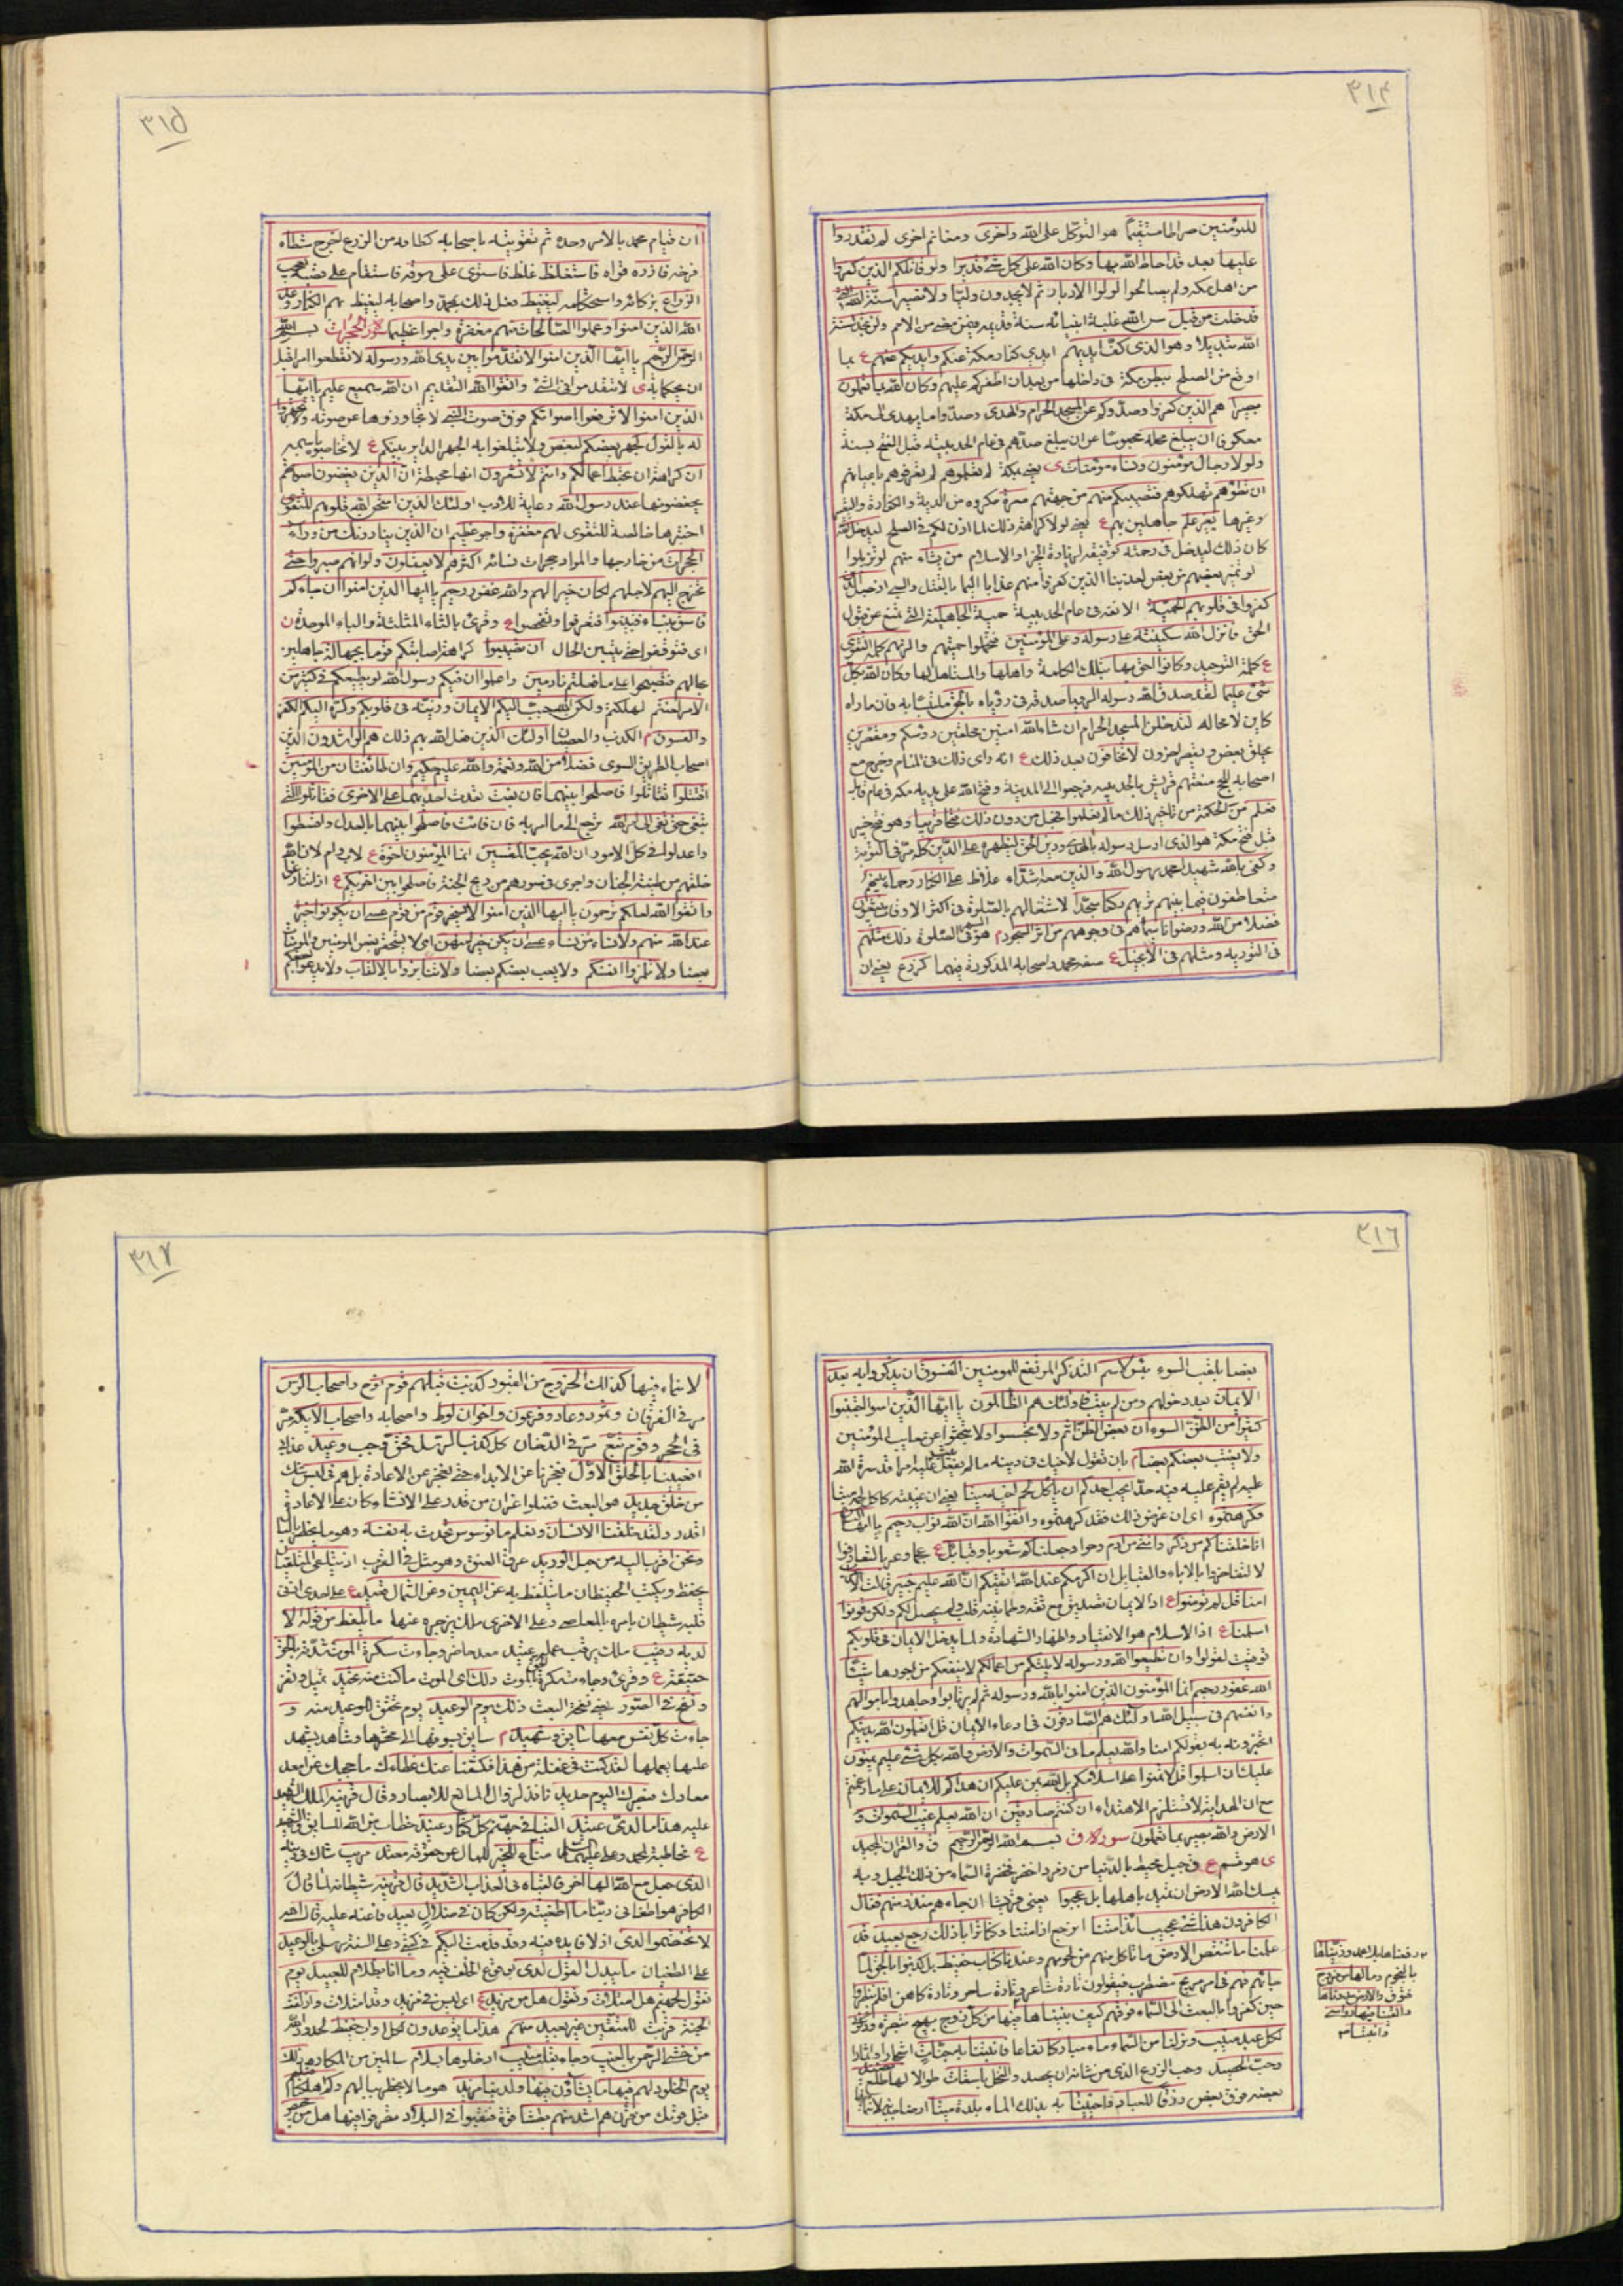 ٣١٤
للمؤمنين صراطا مستقيما هو التوكل على الله واخرى ومغانم اخرى لم تقدروا
عليها بعد قد احاط الله بها وكان الله على كل شئ قديرا ولو قاتلكم الذين كفروا
من اهل مكه ولم يصالحوا لولوا الادبار ثم لا يجدون وليا ولا نصيرا سنة الله التي
قد خلت من قبل سن الله غلبة انبيائه سنة قديمه فيمن مضى من الامم ولن تجد لسنة
الله تبديلا وهو الذى كف ايديهم ايدي كفار مكة عنكم وايديكم عنهم ع بما
اوقع من الصلح ببطن مكة فى داخلها من بعد ان اظفركم عليهم وكان الله بما تعملون
بصيرا هم الذين كفروا وصدوكم عن المسجد الحرام والهدى وصدوا ما يهدى الى مكة
معكوفا ان يبلغ محله محبوسا عن ان يبلغ صدهم فى عام الحديبية قبل الفتح بسنة
ولولا رجال مؤمنون ونساء مؤمنات ى يعنى بمكة لم تعلموهم لم تعرفوهم باعيانهم
ان تطؤهم تهلكوهم فتصيبكم منهم من جهتهم معرة مكروه من الدية والكفارة
وغيرها بغير علم جاهلين بهم ع يعنى لولا كراهة ذلك لما اذن لكم فى الصلح ليدخل الله
كان ذلك ليدخل فى رحمته توفيقه لزيادة الخير او الاسلام من يشاء منهم لو تزيلوا
لو تميز بعضهم من بعض لعذبنا الذين كفروا منهم عذابا اليما بالقتل والسبى اذ جعل الذين
كفروا فى قلوبهم الحمية الانفة فى عام الحديبية حمية الجاهلية التى تمنع عن قبول
الحق فانزل الله سكينته على رسوله وعلى المؤمنين فتحملوا حميتهم والزمهم كلمة التقوى
ع كلمة التوحيد وكانوا احق بها بتلك الكلمة واهلها والمستاهل لها وكان الله بكل
شئ عليما لقد صدق الله رسوله الرؤيا صدقه فى رؤياه بالحق ملتبسا به فان ما راه
كاين لا محاله لتدخلن المسجد الحرام ان شاء الله امنين محلقين رؤسكم ومقصرين
يحلق بعض ويقصر اخرون لا تخافون بعد ذلك ع انه راى ذلك فى المنام وخرج مع
اصحابه للحج فمنعتهم قريش بالحديبيه فرجعوا الى المدينة وفتح الله على يديه مكه فى عام قابل
فعلم من الحكمة من تاخير ذلك ما لم تعلموا فجعل من دون ذلك فتحا قريبا وهو فتح خيبر
قبل فتح مكة هو الذى ارسل رسوله بالهدى ودين الحق ليظهره على الدين كله مر فى التوبة
وكفى بالله شهيدا محمد رسول الله والذين معه اشداء غلاظ على الكفار رحماء بينهم
متعاطفون فيما بينهم تريهم ركعا سجدا لاشتغالهم بالصلوة فى اكثر الاوقات يبتغون
فضلا من الله ورضوانا سيماهم فى وجوههم من اثر السجود م هو السهر فى الصلوة ذلك مثلهم
فى التوريه ومثلهم فى الانجيل ع صفة محمد واصحابه المذكورة فيهما كزرع يعنى ان
٣١٥
ان قيام محمد بالامر وحده ثم تقويته باصحابه كطاقة من الزرع اخرج شطأه
فرخه فازره قواه فاستغلظ غلظ فاستوى على سوقه فاستقام على قصبه يعجب
الزراع بزكائه واستحكامه ليغيظ فعل ذلك بمحمد واصحابه ليغيظ بهم الكفار وعد
الله الذين امنوا وعملوا الصالحات منهم مغفرة واجرا عظيما سورة الحجرات بسم الله
الرحمن الرحيم يا ايها الذين امنوا لا تقدموا بين يدى الله ورسوله لا تقطعوا امرا قبل
ان يحكما به ى لا تتقدموا فى الشئ واتقوا الله التقديم ان الله سميع عليم يا ايها
الذين امنوا لا ترفعوا اصواتكم فوق صوت النبى لا تجاوزوها عن صوته ولا تجهروا
له بالقول كجهر بعضكم لبعض ولا تبلغوا به الجهر الداير بينكم ع لا تخاطبوه باسمه
ان كراهة ان تحبط اعمالكم وانتم لا تشعرون انها محبطة ان الذين يغضون اصواتهم
يخفضونها عند رسول الله رعاية للادب اولئك الذين امتحن الله قلوبهم للتقوى
اختبرها خالصة للتقوى لهم مغفرة واجر عظيم ان الذين ينادونك من وراء
الحجرات من خارجها والمراد حجرات نسائه اكثرهم لا يعقلون ولو انهم صبروا حتى
تخرج اليهم لاجلهم لكان خيرا لهم والله غفور رحيم يا ايها الذين امنوا ان جاءكم
فاسق بنباء فتبينوا فتعرفوا وتفحصوا ع وقرئ بالثاء المثلثة والباء الموحدة ن
اى فتوقفوا حتى يتبين الحال ان تصيبوا كراهة اصابتكم قوما بجهالة جاهلين
بحالهم فتصبحوا على ما فعلتم نادمين واعلموا ان فيكم رسول الله لو يطيعكم فى كثير من
الامر لعنتم لهلكتم ولكن الله حبب اليكم الايمان وزينه فى قلوبكم وكره اليكم الكفر
والفسوق م الكذب والعصيان اولئك الذين فعل الله بهم ذلك هم الراشدون الذين
اصحاب الطريق السوى فضلا من الله ونعمة والله عليم حكيم وان طائفتان من المؤمنين
اقتتلوا تقاتلوا فاصلحوا بينهما فان بغت تعدت احديهما على الاخرى فقاتلوا التى
تبغى حتى تفئ الى امر الله ترجع الى ما امر به فان فاءت فاصلحوا بينهما بالعدل واقسطوا
واعدلوا فى كل الامور ان الله يحب المقسطين انما المؤمنون اخوة ع لاب وام لان الله
خلقهم من طينة الجنان واجرى فى صورهم من ريح الجنة فاصلحوا بين اخويكم ع اذا تنازعا
واتقوا الله لعلكم ترحمون يا ايها الذين امنوا لا يسخر قوم من قوم عسى ان يكونوا خيرا
عند الله منهم ولا نساء من نساء عسى ان يكن خيرا منهن اى لا يسخر بعض المؤمنين والمؤمنات
بعضا ولا تلمزوا انفسكم ولا يعب بعضكم بعضا ولا تنابزوا بالالقاب ولا يدعوا بعضكم
٣١٦
بعضا بلقب السوء بئس الاسم الذكر المرتفع للمومنين الفسوق ان يذكروا به بعد
الايمان بعد دخولهم ومن لم يتب فاولئك هم الظالمون يا ايها الذين امنوا اجتنبوا
كثيرا من الظن السوء ان بعض الظن اثم ولا تجسسوا ولا تبحثوا عن معايب المؤمنين
ولا يغتب بعضكم بعضا م بان تقول لاخيك فى دينه ما لم يفعل وتبث عليه امرا قد ستره الله
عليه لم يقم عليه فيه حد ايحب احدكم ان ياكل لحم اخيه ميتا يعنى ان غيبته كاكل لحمه ميتا
فكرهتموه اى ان عرض ذلك فقد كرهتموه واتقوا الله ان الله تواب رحيم يا ايها الناس
انا خلقناكم من ذكر وانثى من ادم وحوا وجعلناكم شعوبا وقبائل ع عجما وعربا لتعارفوا
لا لتفاخروا بالاباء والقبايل ان اكرمكم عند الله اتقيكم ان الله عليم خبير قالت الاعراب
امنا قل لم تؤمنوا ع اذ الايمان تصديق مع ثقة وطمانينة قلب ولم يحصل لكم ولكن قولوا
اسلمنا ع اذ الاسلام هو الانقياد واظهار الشهادة ولما يدخل الايمان فى قلوبكم
توقيت لقولوا وان تطيعوا الله ورسوله لا يلتكم من اعمالكم لا ينقصكم من اجورها شيئا
الله غفور رحيم انما المؤمنون الذين امنوا بالله ورسوله ثم لم يرتابوا وجاهدوا باموالهم
وانفسهم فى سبيل الله اولئك هم الصادقون فى ادعاء الايمان قل اتعلمون الله بدينكم
اتخبرونه به بقولكم امنا والله يعلم ما فى السموات والارض والله بكل شئ عليم يمنون
عليك ان اسلموا قل لا تمنوا على اسلامكم بل الله يمن عليكم ان هداكم للايمان على ما زعمتم
مع ان الهداية لا تستلزم الاهتداء ان كنتم صادقين ان الله يعلم غيب السموات و
الارض والله بصير بما تعملون سورة ق بسم الله الرحمن الرحيم ق والقران المجيد
ى هو قسم ع ق جبل محيط بالدنيا من زمرد اخضر فخضرة السماء من ذلك الجبل وبه
يمسك الله الارض ان تميد باهلها بل عجبوا يعنى قريشا ان جاءهم منذر منهم فقال
الكافرون هذا شئ عجيب ائذا متنا انرجع اذا متنا وكنا ترابا ذلك رجع بعيد قد
علمنا ما تنقص الارض ما تاكل منهم من لحومهم وعندنا كتاب حفيظ بل كذبوا بالحق لما
جاءهم فهم فى امر مريج مضطرب فيقولون تارة شاعر وتارة ساحر وتارة كاهن افلم ينظروا
حين كفروا بالبعث الى السماء فوقهم كيف بنيناها فيها من كل زوج بهيج تبصرة وذكرى
لكل عبد منيب ونزلنا من السماء ماء مباركا نفاعا فانبتنا به جنات اشجارا واثمارا
وحب الحصيد وحب الزرع الذى من شانه ان يحصد والنخل باسقات طوالا لها طلع نضيد
بعضه فوق بعض رزقا للعباد فاحيينا به بذلك الماء بلدة ميتا ارضا
رفعناها بلا عمد وزيناها
بالنجوم وما لها من فروج
فتوق والارض مددناها
والقينا فيها رواسى
وانبتنا
٣١٧
لا نماء فيها كذلك الخروج من القبور كذبت قبلهم قوم نوح واصحاب الرس
مر فى الفرقان وثمود وعاد وفرعون واخوان لوط واصحابه واصحاب الايكة مر
فى الحجر وقوم تبع مر فى الدخان كل كذب الرسل فحق وجب وعيد عذابى
افعيينا بالخلق الاول فعجزنا عن الابداء حتى نعجز عن الاعادة بل هم فى لبس شك
من خلق جديد هو البعث فضلوا عن ان من قدر على الانشاء كان على الاعادة
اقدر ولقد خلقنا الانسان ونعلم ما توسوس تحدث به نفسه وهو ما يخطر بالبال
ونحن اقرب اليه من حبل الوريد عرق العنق وهو مثل فى القرب اذ يتلقى المتلقيان
يحفظ ويكتب الحفيظان ما يتلفظ به عن اليمين وعن الشمال قعيد ع على احدى اذنى
قلبه شيطان يامره بالمعاصى وعلى الاخرى ملك يزجره عنها ما يلفظ من قول الا
لديه رقيب ملك يرقب عمله عتيد معد حاضر وجاءت سكرة الموت شدته بالحق
حقيقته ع وقرئ وجاءت سكرة الحق بالموت ذلك اى الموت ما كنت منه تحيد تميل وتفر
ونفخ فى الصور يعنى نفخة البعث ذلك يوم الوعيد يوم تحقق الوعيد منه و
جاءت كل نفس معها سائق وشهيد م سايق يسوقها الى محشرها وشاهد يشهد
عليها بعملها لقد كنت فى غفلة من هذا فكشفنا عنك غطاءك ما حجبك عن امر
معادك فبصرك اليوم حديد نافذ لزوال المانع للابصار وقال قرينه الملك الشهيد
عليه هذا ما لدى عتيد القيا فى جهنم كل كفار عنيد خطاب من الله للسايق والشهيد
ع مخاطبة لمحمد وعلى عليهما السلام مناع للخير للمال عن حقوقه معتد مريب شاك فى دينه
الذى جعل مع الله الها اخر فالقياه فى العذاب الشديد قال قرينه شيطانه لما قال
الكافر هو اطغانى ربنا ما اطغيته ولكن كان فى ضلال بعيد فاعنته عليه قال الله
لا تختصموا لدى اذ لا فايده فيه وقد قدمت اليكم فى كتبى وعلى السنة رسلى بالوعيد
على الطغيان ما يبدل القول لدى بوقوع الخلف فيه وما انا بظلام للعبيد يوم
نقول لجهنم هل امتلات وتقول هل من مزيد ع اى ليس فى مزيد وقد امتلات وازلفت
الجنة قربت للمتقين غير بعيد منهم هذا ما توعدون لكل اواب حفيظ لحدود الله
من خشى الرحمن بالغيب وجاء بقلب منيب ادخلوها بسلام سالمين من المكاره ذلك
يوم الخلود لهم فيها ما يشاؤن فيها ولدينا مزيد هو ما لا يخطر ببالهم وكم اهلكنا
قبل قومك من قرن هم اشد منهم بطشا قوة فنقبوا فى البلاد فتصرفوا فيها هل من